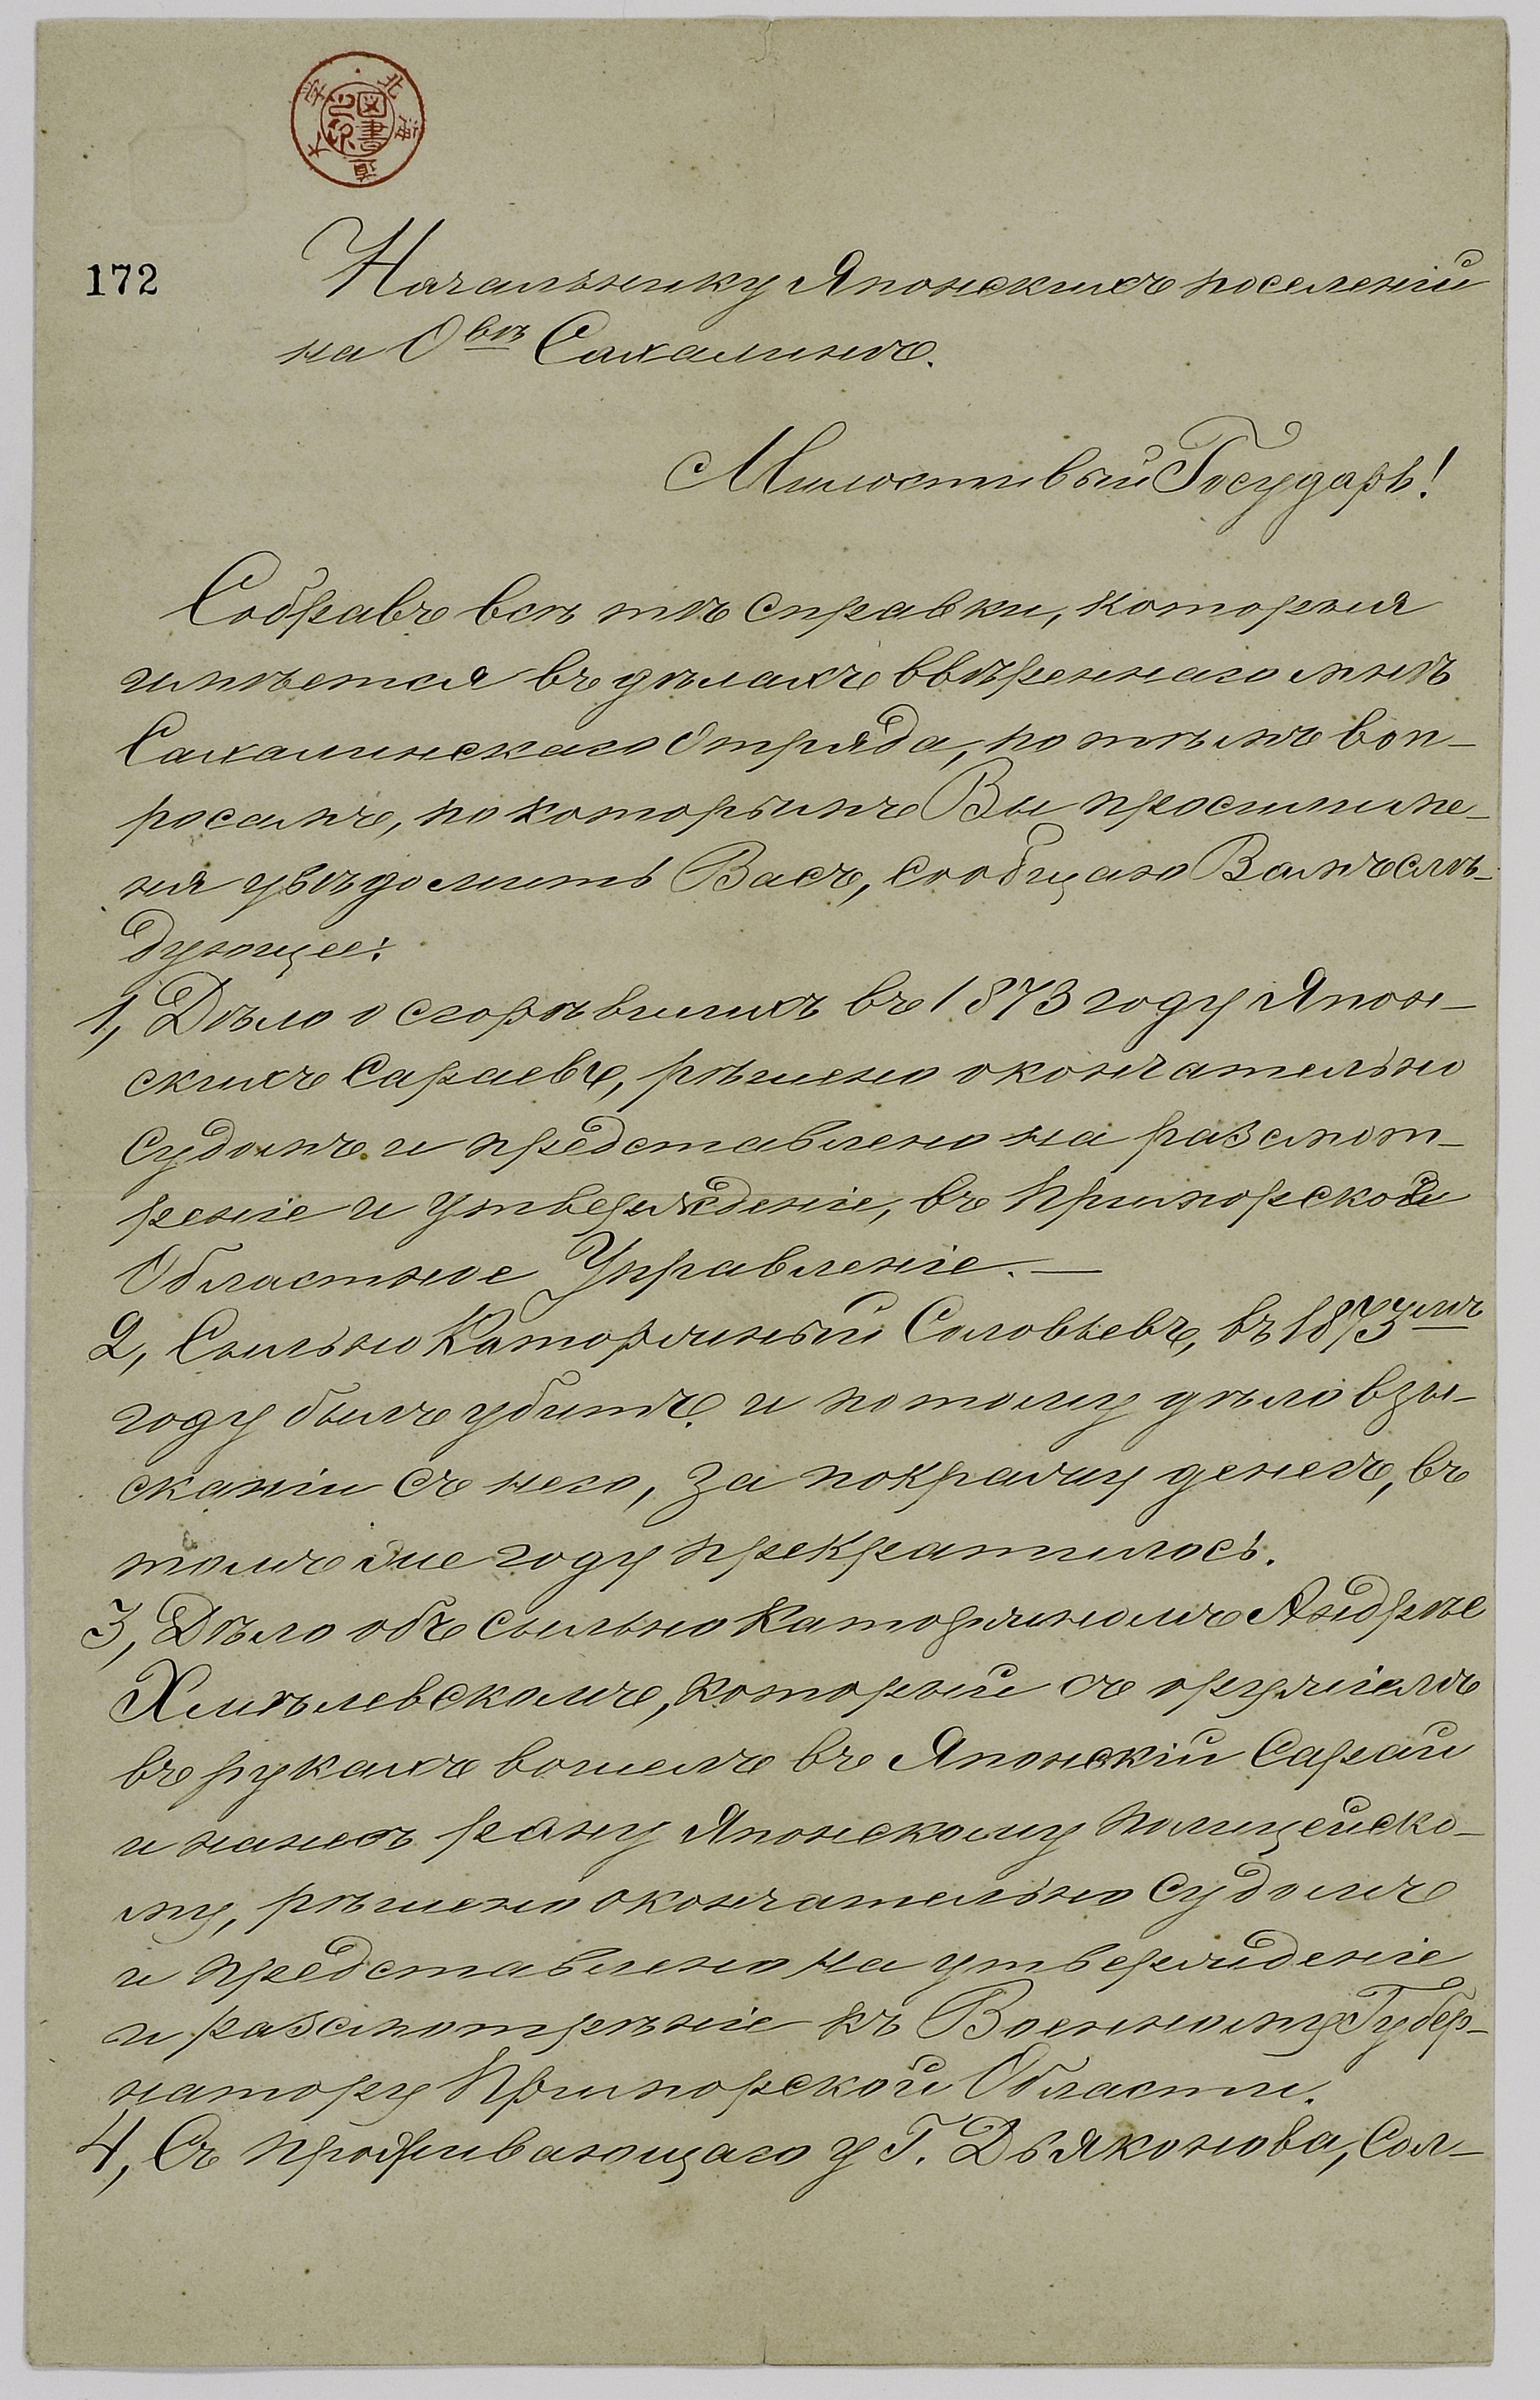 北海道大学図書之印
172
Начальнику Японскихъ поселеній
на Овѣ Сахалинѣ.
Милостивый Государь!
Собравъ всѣ тѣ справки, которыя
имѣется въ дѣлахъ ввѣреннаго мнѣ
Сахалинскаго Отряда, по тѣмъ воп-
росамъ, по которымъ Вы просили ме-
ня увѣдомить Васъ, сообщаю Вамъ слѣ-
дующее:
1, Дѣло о сгорѣвшихъ въ 1873 году Япон-
скихъ Сараевъ, рѣшено окончательно
Судомъ и представлено на разсмот-
реніе и утвержденіе, въ Приморское
Областное Управленіе. —
2, Сыльно Каторжный Соловьевъ, въ 1873мъ
году былъ убитъ и потому дѣло взы-
сканіи съ него, за покражу денегъ, въ
томъ же году прекратилось.
3, Дѣло объ Сыльно Каторжномъ Андрѣе
Хмѣлевскомъ, который съ оружіемъ
въ рукахъ вошелъ въ Японскій Сарай
и нанесъ рану Японскому Полицейско-
му, рѣшено окончательно Судомъ
и представлено на утвержденіе
и разсмотрѣніе къ Военному Губер-
натору Приморской Области.
4, Съ проживающаго у Г. Дьяконова, Сол-